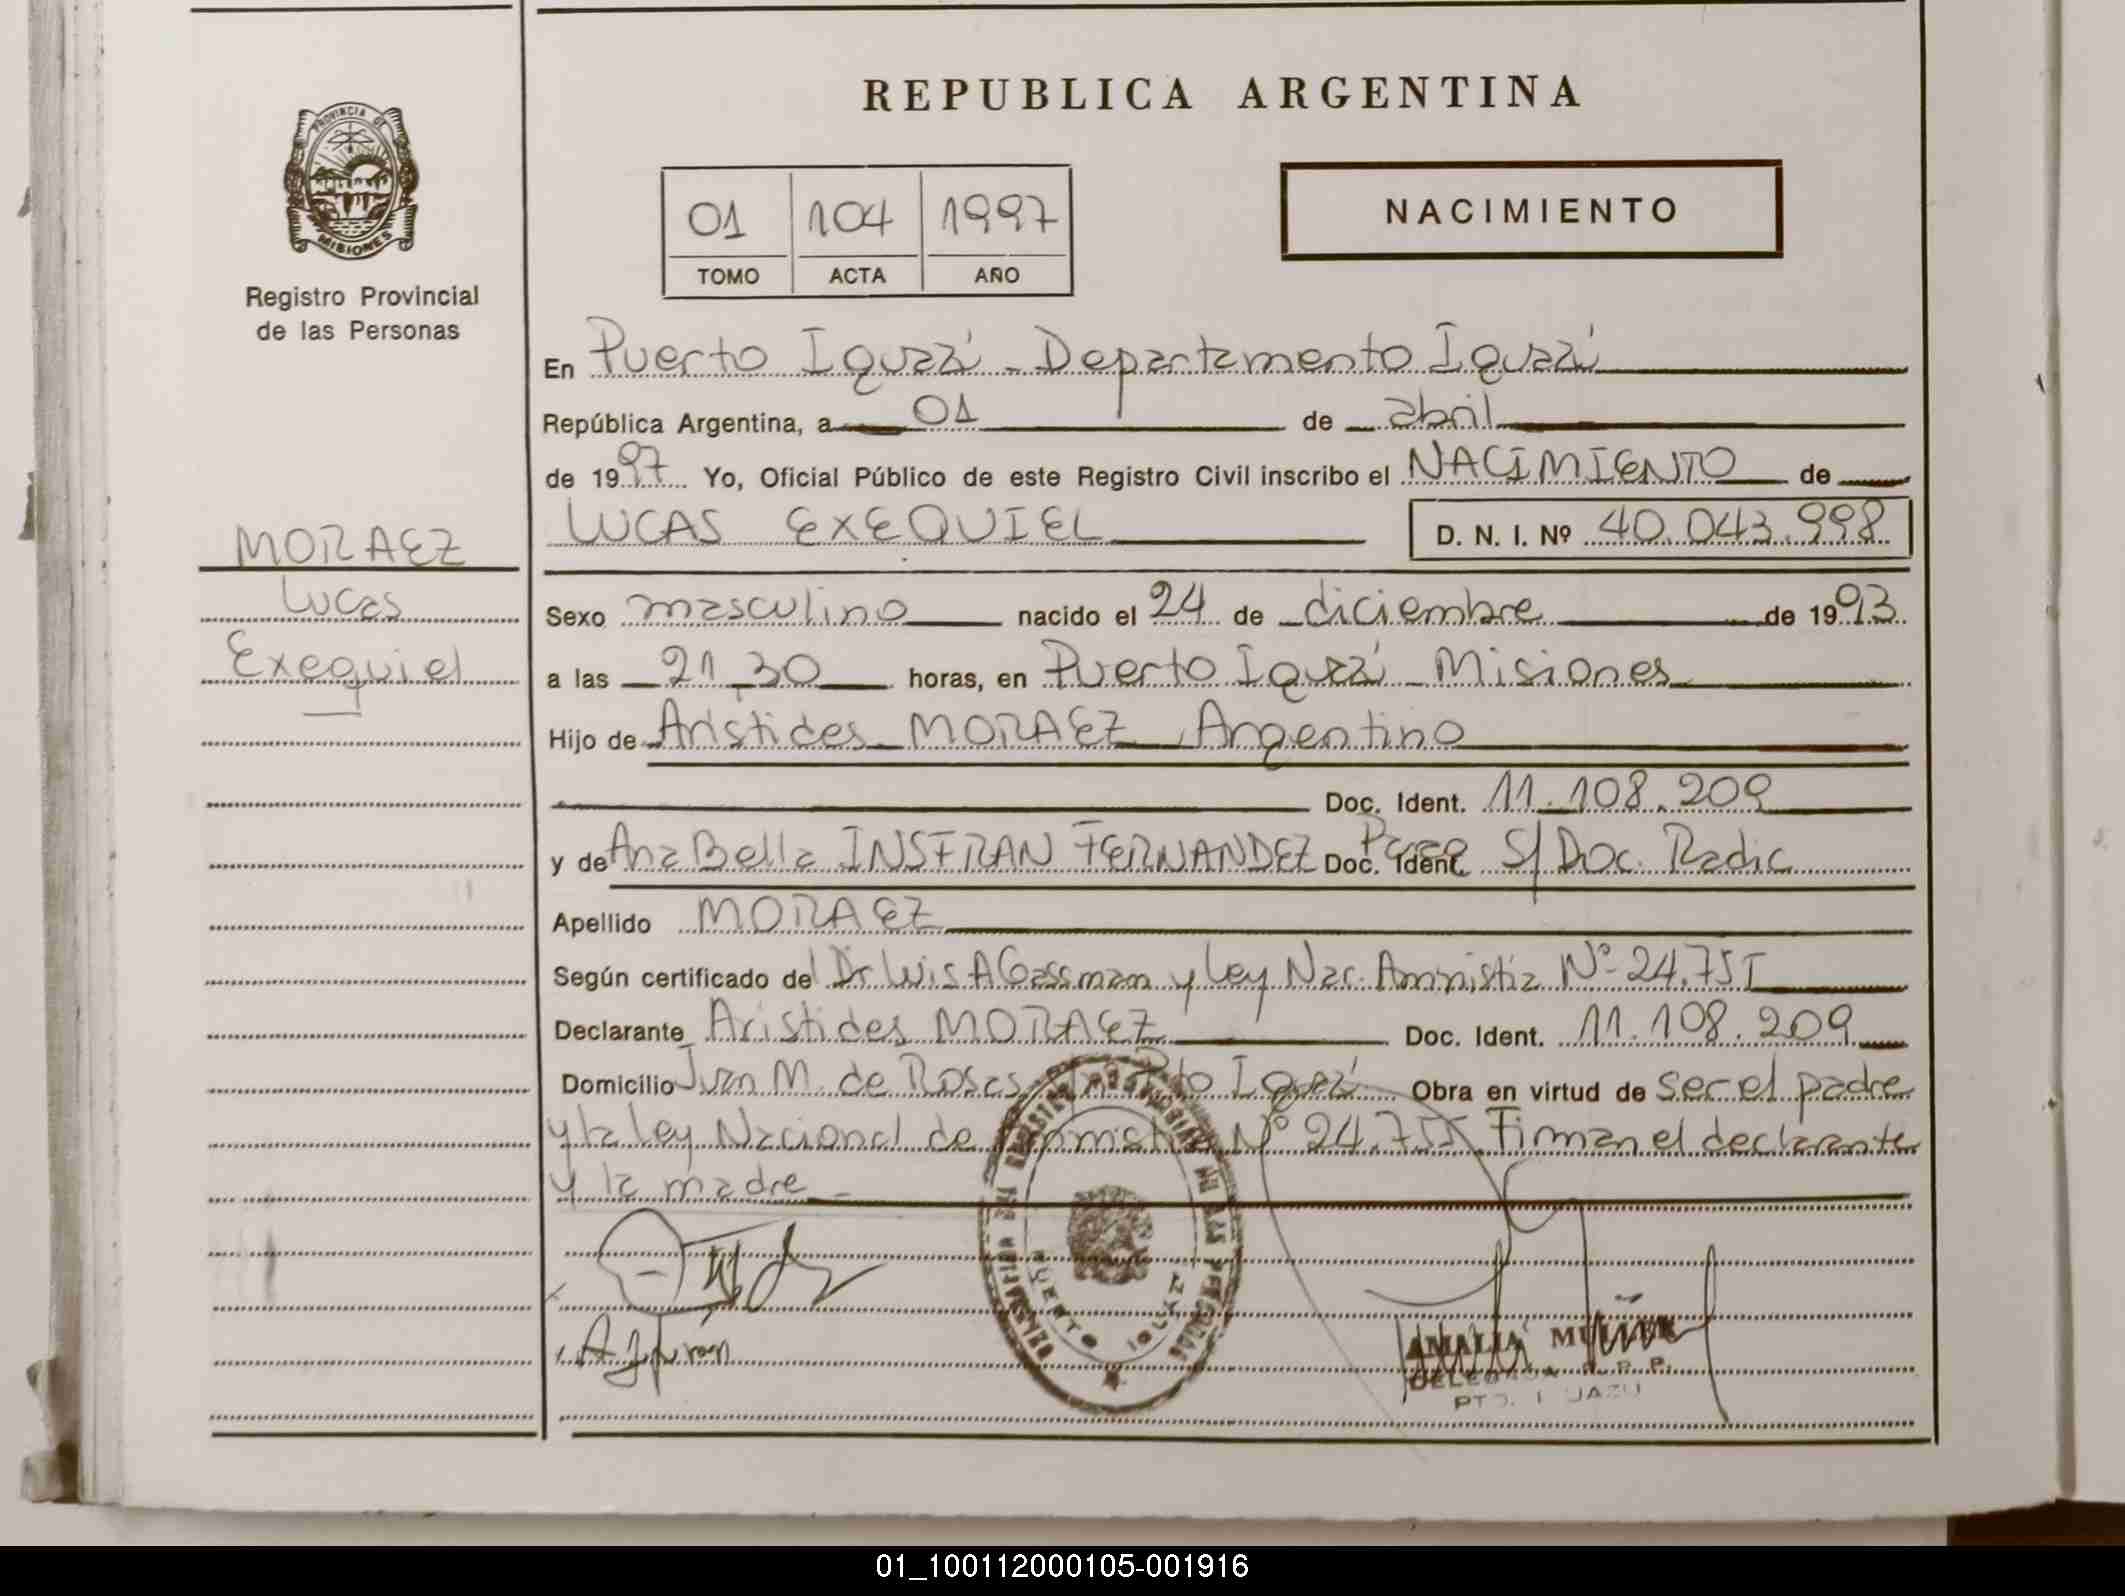 REPUBLICA ARGENTINA
PROVINCIA DE
MISIONES
Registro Provincial
de las Personas
01 104 1997
TOMO ACTA AÑO
NACIMIENTO
En Puerto Iguazú - Departamento Iguazú
República Argentina, a 01 de abril
de 1997. Yo, Oficial Público de este Registro Civil inscribo el NACIMIENTO de
LUCAS EXEQUIEL D. N. I. Nº 40.043.998
MORAEZ
Lucas
Exequiel
Sexo masculino nacido el 24 de diciembre de 1993
a las 21,30 horas, en Puerto Iguazú - Misiones
Hijo de Arístides MORAEZ, Argentino
Doc. Ident. 11.108.209
y de Ana Bella INSFRAN FERNANDEZ Doc. Ident. S/ Doc. Radic
Apellido MORAEZ
Según certificado del Dr. Luis A Gassmam y Ley Nac. Amnistía Nº 24.755
Declarante Arístides MORAEZ Doc. Ident. 11.108.209
Domicilio Juan M. de Rosas Pto Iguazú Obra en virtud de ser el padre
y la Ley Nacional de Amnistía Nº 24.755. Firman el declarante
y la madre
PUERTO IGUAZU
AMALIA
DELEGADA R. P. P.
PTO. IGUAZU
01_100112000105-001916